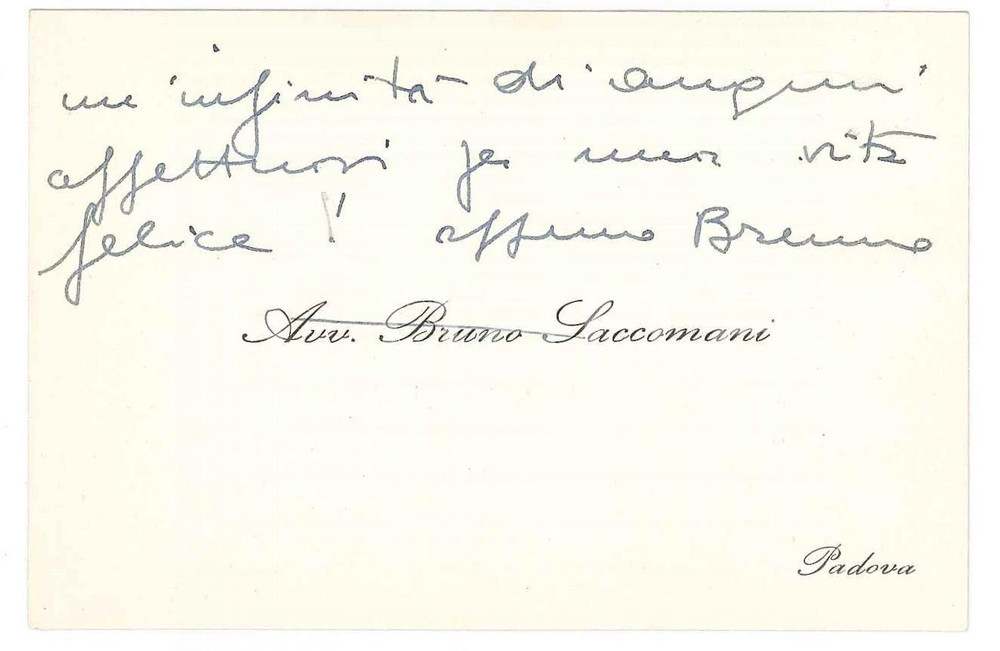 un'infinità di auguri
affettuosi per una vita
felice! affmo Bruno
Avv. Bruno Saccomani
Padova